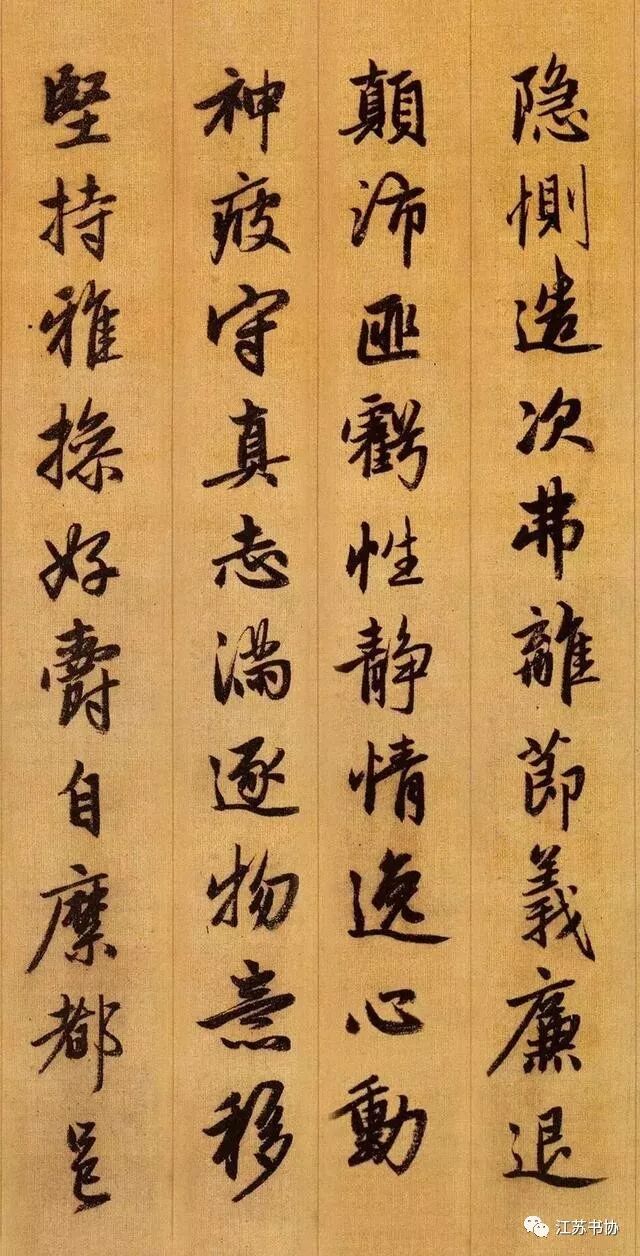 隐恻造次弗離節義廉退
顛沛匪虧性静情逸心動
神疲守真志满逐物意移
堅持雅操好爵自縻都邑
江苏书协